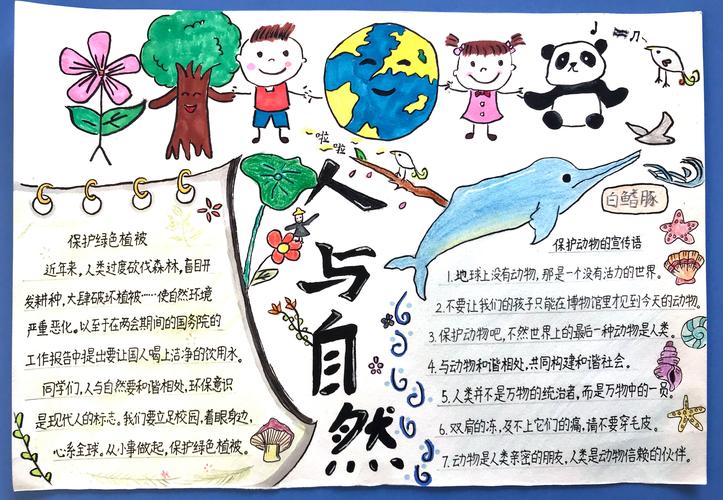 啦
啦
人
与
自
然
保护绿色植被
近年来,人类过度砍伐森林,盲目开
发耕种,大肆破坏植被……使自然环境
严重恶化。以至于在两会期间的国务院的
工作报告中提出要让国人喝上洁净的饮用水。
同学们,人与自然要和谐相处,环保意识
是现代人的标志。我们要立足校园,着眼身边,
心系全球。从小事做起,保护绿色植被。
白鳍豚
保护动物的宣传语
1.地球上没有动物,那是一个没有活力的世界。
2.不要让我们的孩子只能在博物馆里才见到今天的动物。
3.保护动物吧,不然世界上的最后一种动物是人类。
4.与动物和谐相处,共同构建和谐社会。
5.人类并不是万物的统治者,而是万物中的一员。
6.双肩的冻,及不上它们的痛,请不要穿毛皮。
7.动物是人类亲密的朋友,人类是动物信赖的伙伴。